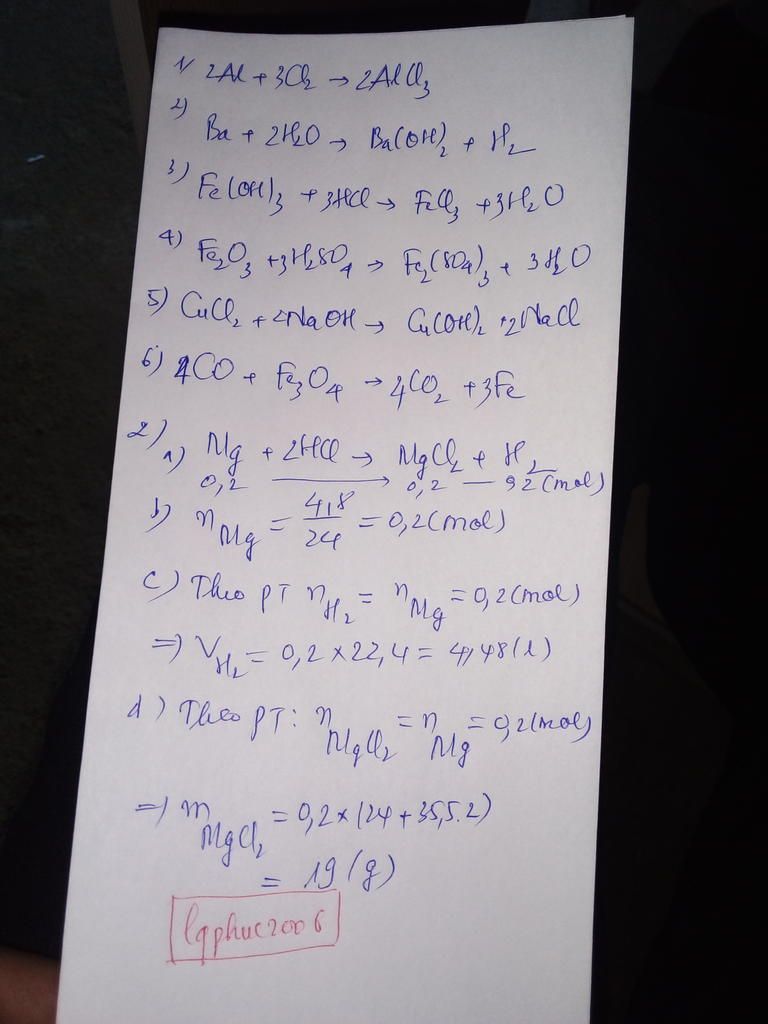 1) 2Al + 3Cl₂ → 2AlCl₃
2) Ba + 2H₂O → Ba(OH)₂ + H₂
3) Fe(OH)₃ + 3HCl → FeCl₃ + 3H₂O
4) Fe₂O₃ + 3H₂SO₄ → Fe₂(SO₄)₃ + 3H₂O
5) CuCl₂ + 2NaOH → Cu(OH)₂ + 2NaCl
6) 4CO + Fe₃O₄ → 4CO₂ + 3Fe
2) a) Mg + 2HCl → MgCl₂ + H₂
0,2 → 0,2 — 0,2 (mol)
b) n Mg = 4,8/24 = 0,2 (mol)
c) Theo PT n H₂ = n Mg = 0,2 (mol)
=> V H₂ = 0,2 × 22,4 = 4,48 (l)
d) Theo PT: n MgCl₂ = n Mg = 0,2 (mol)
=> m MgCl₂ = 0,2 × (24 + 35,5.2)
= 19 (g)
lqphuc2006